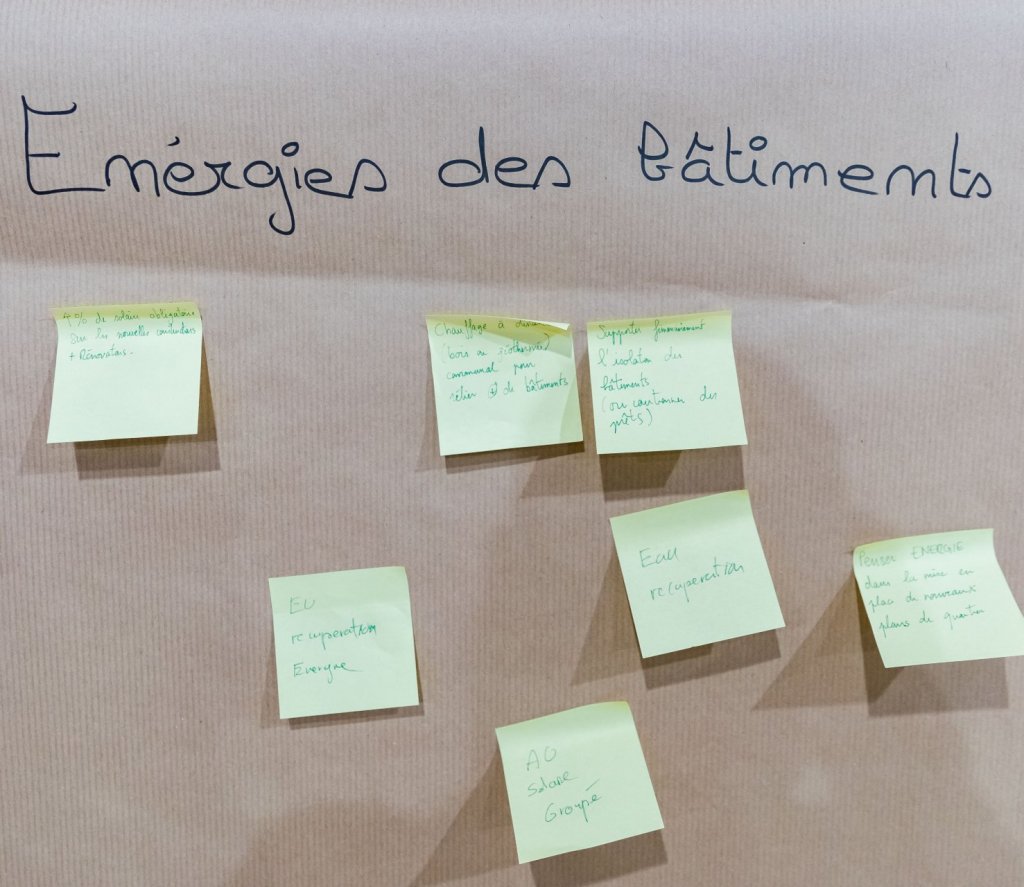 Enérgies des bâtiments
% de solaire obligatoire
sur les nouvelles
+ Rénovations.
Chauffage à
(bois ou géothermie)
communal pour
rélier de bâtiments
Supporter financièrement
l'isolation des
bâtiments
(ou cautionner des
prêts)
Eau
recuperation
Penser ENERGIE
dans la mise en
place de nouveaux
plans de quartier
EU
recuperation
Energie
AO
Solaire
Groupé